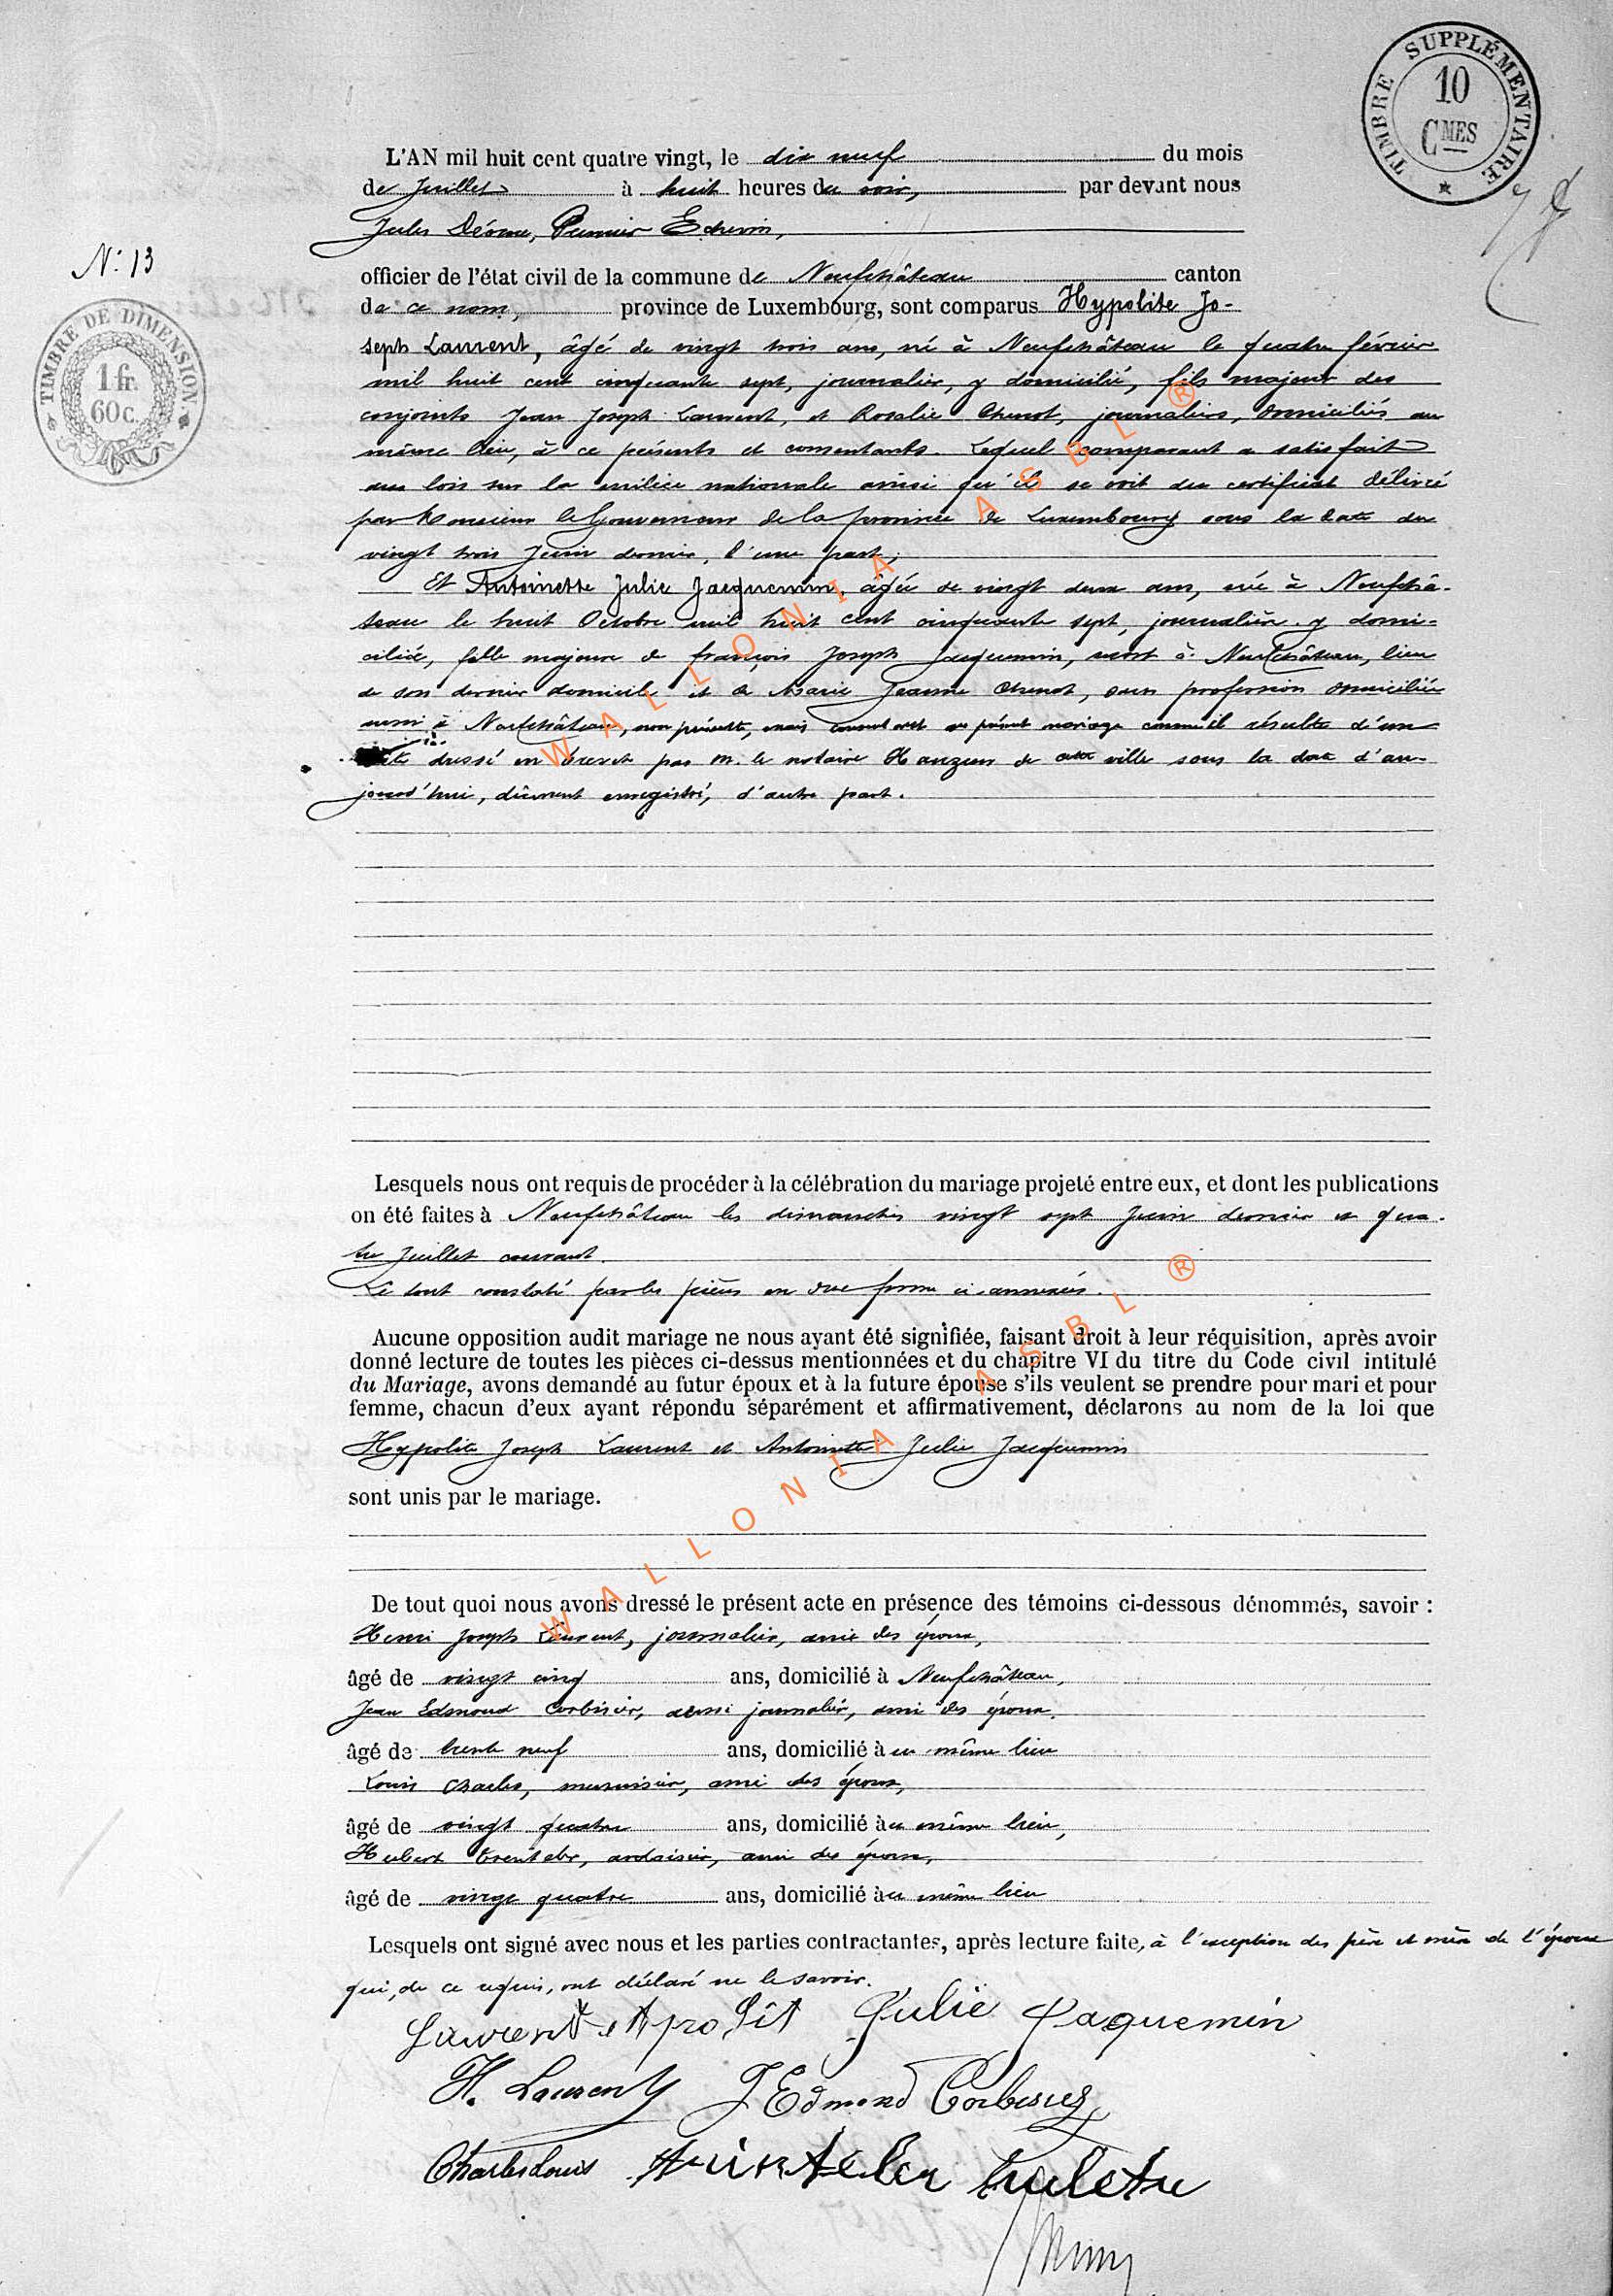 TIMBRE SUPPLÉMENTAIRE
10
CMES
L'AN mil huit cent quatre vingt, le dix neuf du mois
de Juillet à huit heures du soir, par devant nous
Jules, Premier Echevin,
N: 13
officier de l'état civil de la commune de Neufchâteau canton
de ce nom, province de Luxembourg, sont comparus Hypolite Jo-
TIMBRE DE DIMENSION
1 fr.
60c.
seph Laurent, âgé de vingt trois ans, né à Neufchâteau le quatre février
mil huit cent cinquante sept, journalier, y domicilié, fils majeur des
conjoints Jean Joseph Laurent, et Rosalie Chenot, journaliers, domiciliés au
même lieu, à ce présents et consentants. Lequel comparant a satisfait
aux lois sur la milice nationale ainsi qu'il se voit du certificat délivré
par Monsieur le Gouverneur de la province de Luxembourg sous la date du
vingt trois Juin dernier, d'une part;
Et Antoinette Julie Jacquemin, âgée de vingt deux ans, née à Neufchâ-
teau le huit Octobre mil huit cent cinquante sept, journalière y domi-
ciliée, fille majeure de françois Joseph Jacquemin, mort à Neufchâteau, lieu
de son dernier domicile et de Marie Jeanne Chenot, sans profession domiciliée
aussi à Neufchâteau, non présente, mais consentant au présent mariage comme il résulte d'un
acte dressé en brevet par M. le notaire Hanzen de cette ville sous la date d'au-
jourd'hui, dûment enregistré, d'autre part.
WALLONIA ASBL ®
Lesquels nous ont requis de procéder à la célébration du mariage projeté entre eux, et dont les publications
on été faites à Neufchâteau les dimanches vingt sept Juin dernier et qua-
tre Juillet courant.
Le tout constaté par les pièces en due forme ci-annexées.
Aucune opposition audit mariage ne nous ayant été signifiée, faisant droit à leur réquisition, après avoir
donné lecture de toutes les pièces ci-dessus mentionnées et du chapitre VI du titre du Code civil intitulé
du Mariage, avons demandé au futur époux et à la future épouse s'ils veulent se prendre pour mari et pour
femme, chacun d'eux ayant répondu séparément et affirmativement, déclarons au nom de la loi que
Hypolite Joseph Laurent et Antoinette Julie Jacquemin
sont unis par le mariage.
WALLONIA ASBL ®
De tout quoi nous avons dressé le présent acte en présence des témoins ci-dessous dénommés, savoir :
Henri Joseph Laurent, journalier, ami des époux,
âgé de vingt cinq ans, domicilié à Neufchâteau,
Jean Edmond Corbisier, aussi journalier, ami des époux,
âgé de trente neuf ans, domicilié au même lieu
Louis Charles, menuisier, ami des époux,
âgé de vingt quatre ans, domicilié au même lieu,
Hubert, ardoisier, ami des époux,
âgé de vingt quatre ans, domicilié au même lieu
Lesquels ont signé avec nous et les parties contractantes, après lecture faite, à l'exception des père et mère de l'époux
qui, de ce requis, ont déclaré ne le savoir.
Laurent Julie Jaquemin
H. Laurent J Edmond Corbisier
Charles Louis